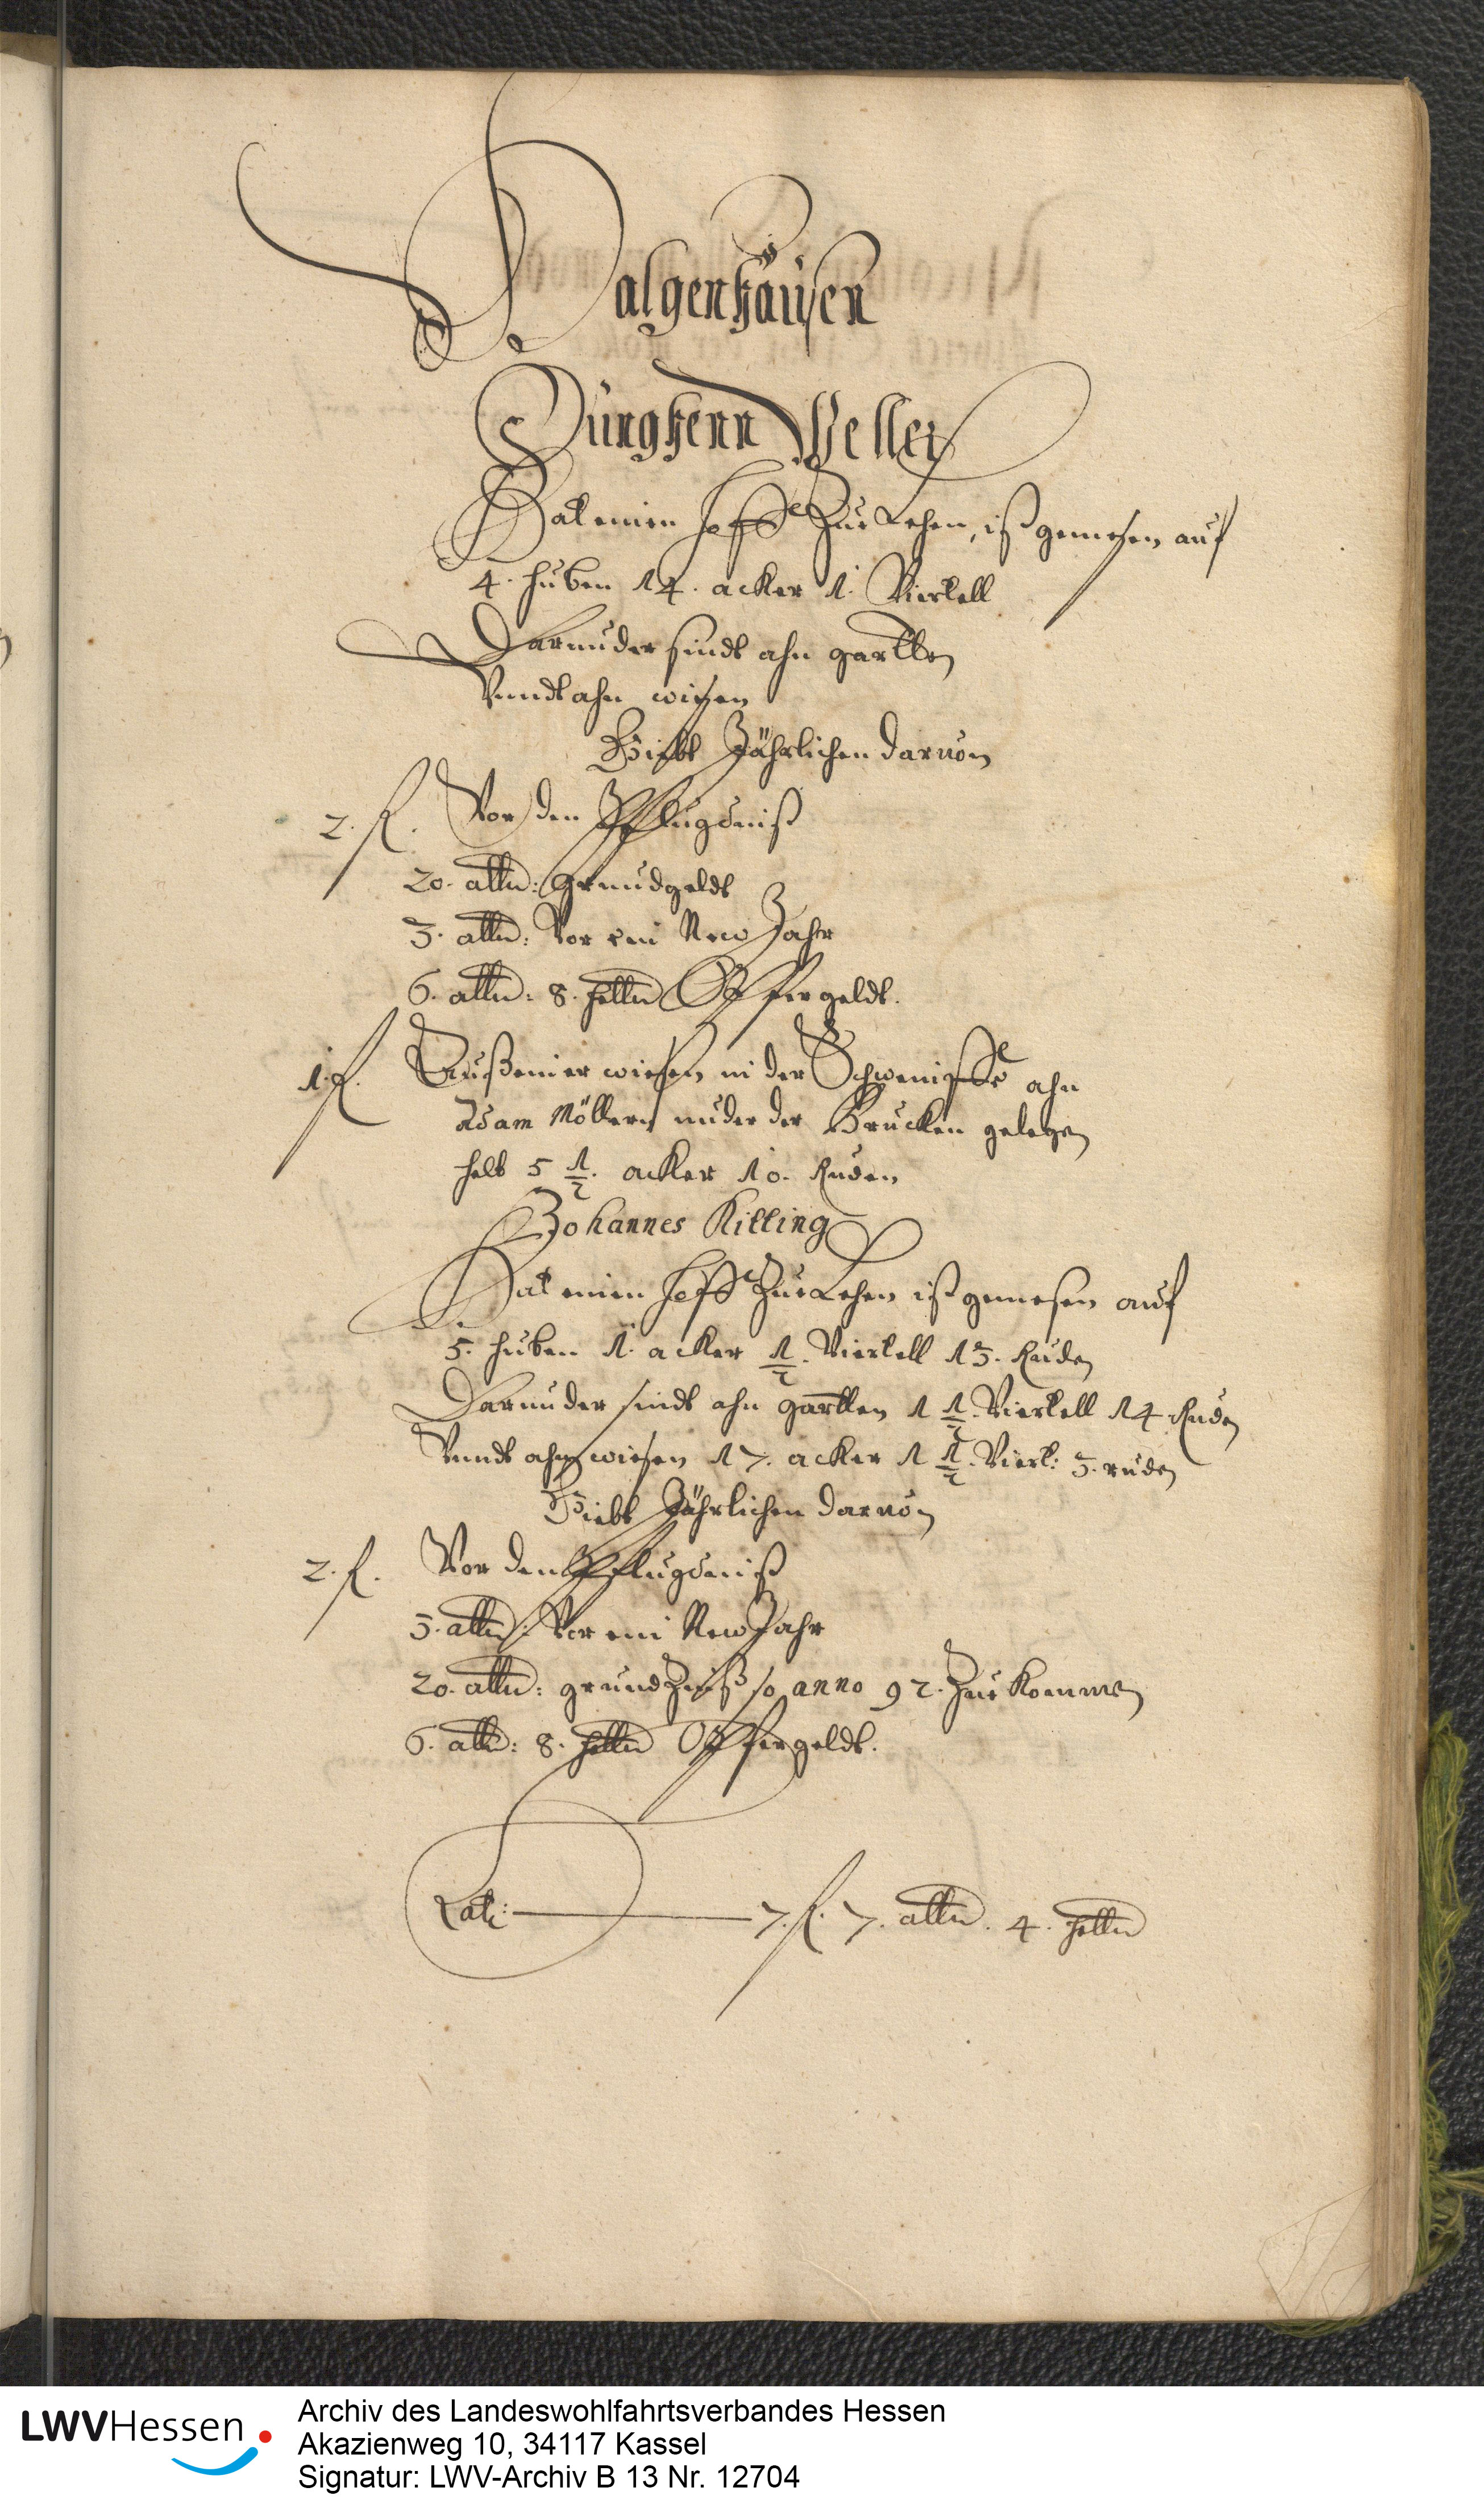 Dalgenhausen
Jungkenn Weller
Hat einen Hoff Zur Lehen, ist gemesen auf
4. huben 14. acker 1. Viertell
Darunder sindt ahn gartten
Vnndt ahn wiesen
Giebt Jährlichen daruon
2. fl. Vor den Pflugdinst
20. albn: Grundgeldt
3. albn: Vor ein New Jahr
6. albn: 8. hellr Opffergeldt.
1. fl. Auß einer wiesen in der ahn
Adam Möllern under der Brucken gelegen
helt 5 1/2. acker 10. Ruden
Johannes Killing
Hat einen Hoff Zur Lehen ist gemesen auf
5. huben 1. acker 1/2. Viertell 13. Ruden
Darunder sindt ahn gartten 1 1/2. Viertell 14 Ruden
Vnndt ahn wiesen 17. acker 1 1/2. Viert: 3. ruden
Giebt Jährlichen daruon
2. fl. Vor den Pflugdinst
3. albn: Vor ein New Jahr
20. albn: grundZinß so anno 92. Zur kommen
6. albn: 8. hellr Opffergeldt.
Lat: 7. fl. 7. albn. 4. hellr
LWVHessen
Archiv des Landeswohlfahrtsverbandes Hessen
Akazienweg 10, 34117 Kassel
Signatur: LWV-Archiv B 13 Nr. 12704